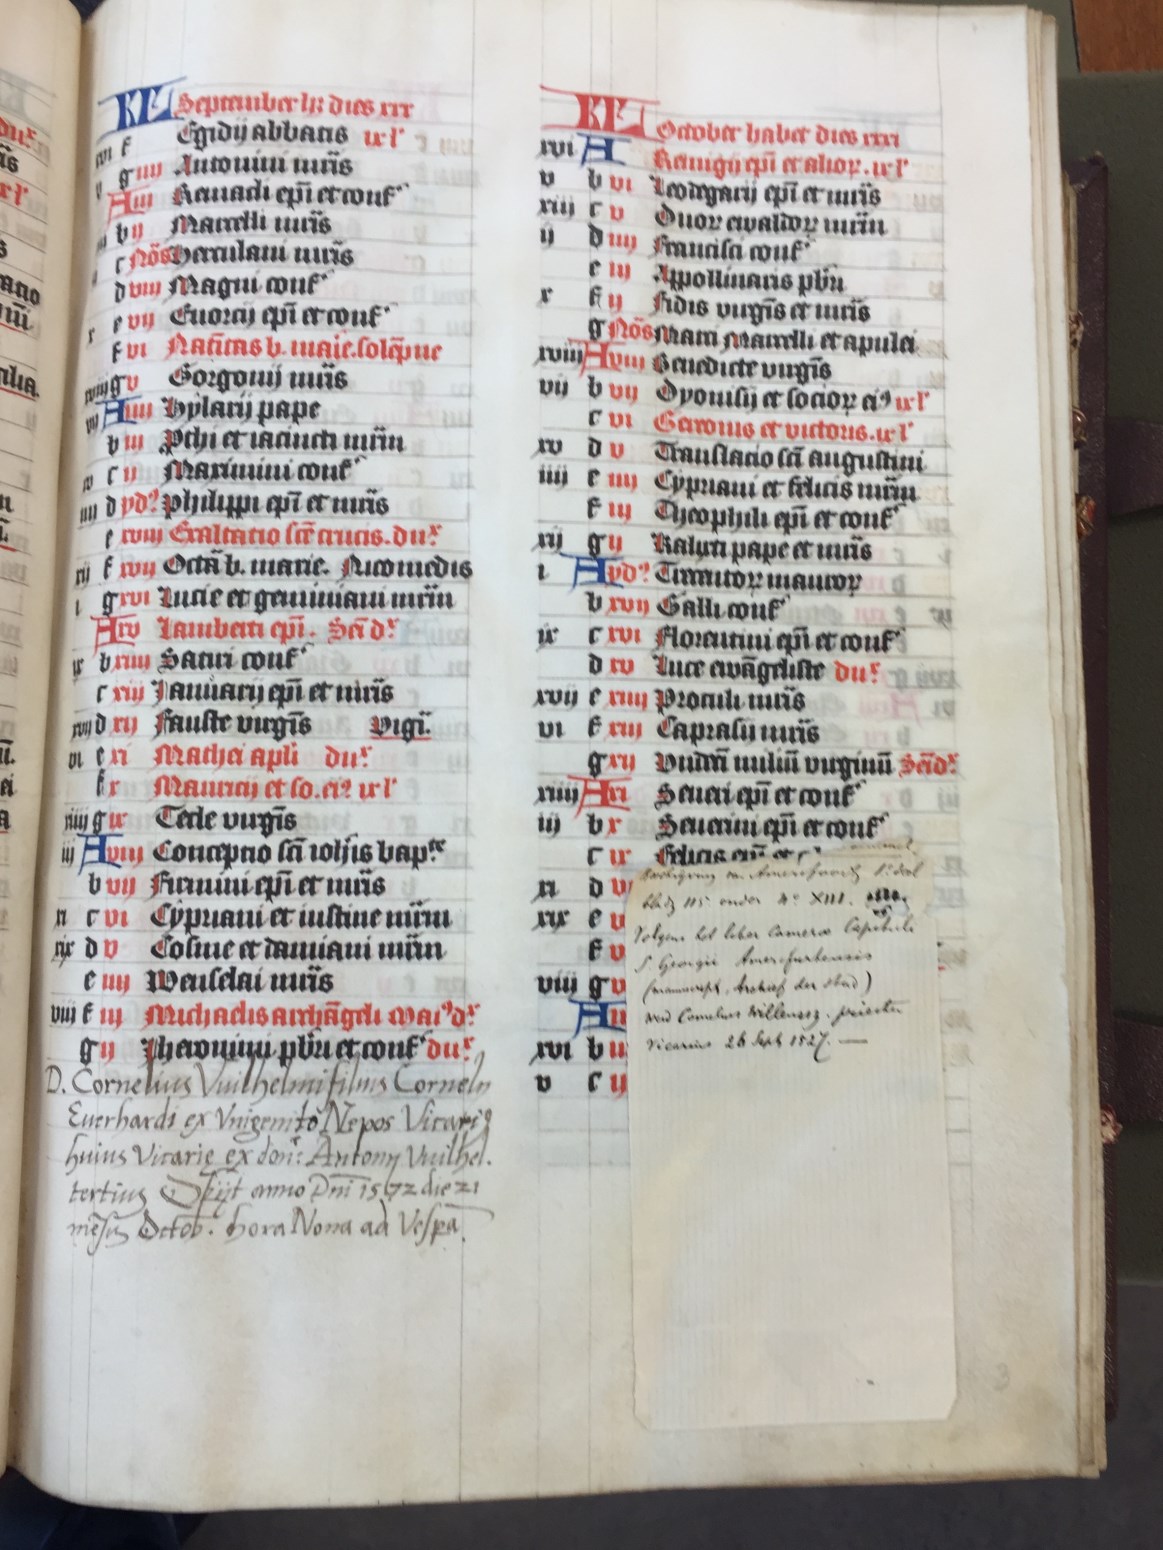 KL September hꝫ dies xxx
xvi f Egidij abbatis ix lˀ
v g iiii Antonini mr̄is
A iii Remacli ep̄i et confˀ
b ij Marcelli mr̄is
c Nōs Herculani mr̄is
d viii Magni confˀ
x e vij Euorcij ep̄i et confˀ
f vi Natītas b. marie. solēpne
xviii g v Gorgonij mr̄is
vij A iiii Hylarij pape
b iii Pthi et iacincti mr̄m
xv c ij Maximini confˀ
iiii d ydˀ Philippi ep̄i et mr̄is
e xviii Exaltatio scē crucis. duˣ
xij f xvij Octā b. marie. Nicomedis
i g xvi Lucie et geminiani mr̄m
A xv Lamberti ep̄i. Scd̄ dˣ
ix b xiiii Satiri confˀ
c xiij Januarij ep̄i et mr̄is
xvij d xij Fauste virgīs vigī.
vi e xi Mathei apl̄i duˣ
f x Mauricij et so. eiꝰ ix lˀ
xiiii g ix Tecle virgīs
iij A viii Conceptio scī ioh̄is bapᵗᵉ
b vij Firmini ep̄i et mr̄is
xi c vi Cypriani et iustine mr̄m
xix d v Cosme et damiani mr̄m
e iiii Wenselai mr̄is
viij f iii Michaelis archāgeli maiˀ dˣ
g ij Jheronimi pbr̄i et confˀ duˣ
D. Cornelius Vuilhelmi filius Cornelij
Euerhardi ex Vnigenito Nepos Vicariꝰ
huius Vicarie ex donᵉ Antony Vuilhel.
tertius Obijt anno Dn̄i 1572 die 21
mēsis Octob. hora Nona ad Vesp̄a.
KL October habet dies xxxi
xvi A Remigij ep̄i et alioꝝ. ix lˀ
v b vi Leodegarij ep̄i et mr̄is
xiij c v Duoꝝ ewaldoꝝ mr̄m
ij d iiii Francisci confˀ
e iii Appollinaris pbr̄i
x f ij Fidis virgīs et mr̄is
g Nōs Marci Marcelli et apulei
xviii A viii Benedicte virgīs
vij b vij Dyonisij et socioꝝ eiꝰ ix lˀ
c vi Gereonis et victoris. ix lˀ
xv d v Translacio scī augustini
iiii e iiii Cypriani et felicis mr̄m
f iii Theophili ep̄i et confˀ
xij g ij Kalixti pape et mr̄is
i A ydˀ Trecentoꝝ mauroꝝ
b xvij Galli confˀ
ix c xvi Florentini ep̄i et confˀ
d xv Luce ewāgeliste duˣ
xvij e xiiii Proculi mr̄is
vi f xiii Caprasij mr̄is
g xij Vndecī miliū virginū Scd̄ dˣ
xiiii A xi Seueri ep̄i et confˀ
iij b x Seuerini ep̄i et confˀ
c ix Felicis ep̄i et
xi d v
xix e v
f v
viij g v
A ii
xvi b ii
v c ij
van Amersfoort 1ᵉ deel
bladz 115 onder Nᵒ XIII.
Volgens het liber Camerae Capituli
S. Georgii Amersfurtensis
(manuscript, Archief der stad)
werd Cornelius Willemsz. priester
Vicarius 26 Sept 1527. —
3